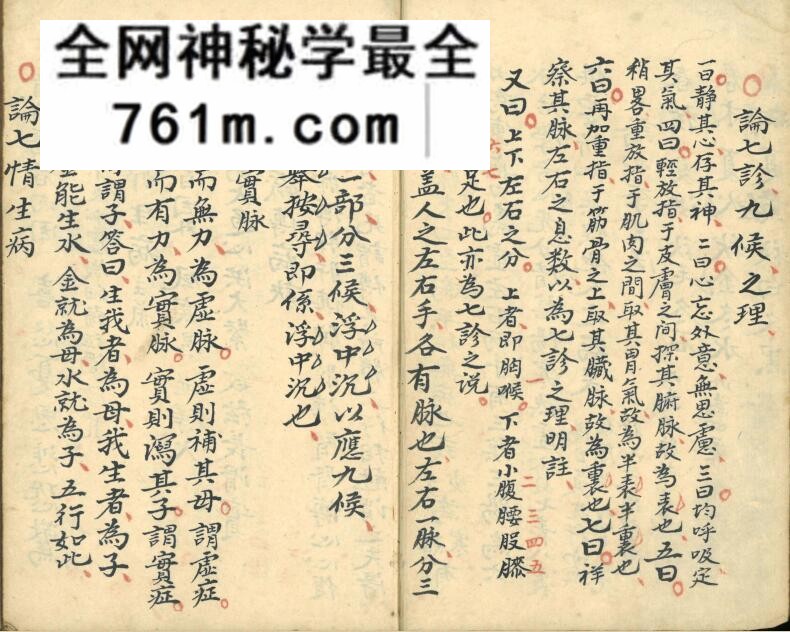 全网神秘学最全
761m.com
論七診九候之理
一曰静其心存其神 二曰心忘外意無思慮 三曰均呼吸定
其氣 四曰輕放指于皮膚之間探其腑脉故為表也 五曰
稍畧重放指于肌肉之間取其胃氣故為半表半裏也
六曰再加重指于筋骨之上取其臟脉故為裏也 七曰祥
察其脉左右之息数以為七診之理明註
又曰 上下左右之分 上者即胸喉 下者小腹腰股膝
一 二 三 四 五
六 七
足也 此亦為七診之説
盖人之左右手各有脉也左右一脉分三
一部分三候浮中沉以應九候
舉按尋即係浮中沉也
實脉
而無力為虚脉 虚則補其母 謂虚症
而有力為實脉 實則瀉其子 謂實症
謂子答曰生我者為母我生者為子
能生水 金就為母水就為子 五行如此
論七情生病